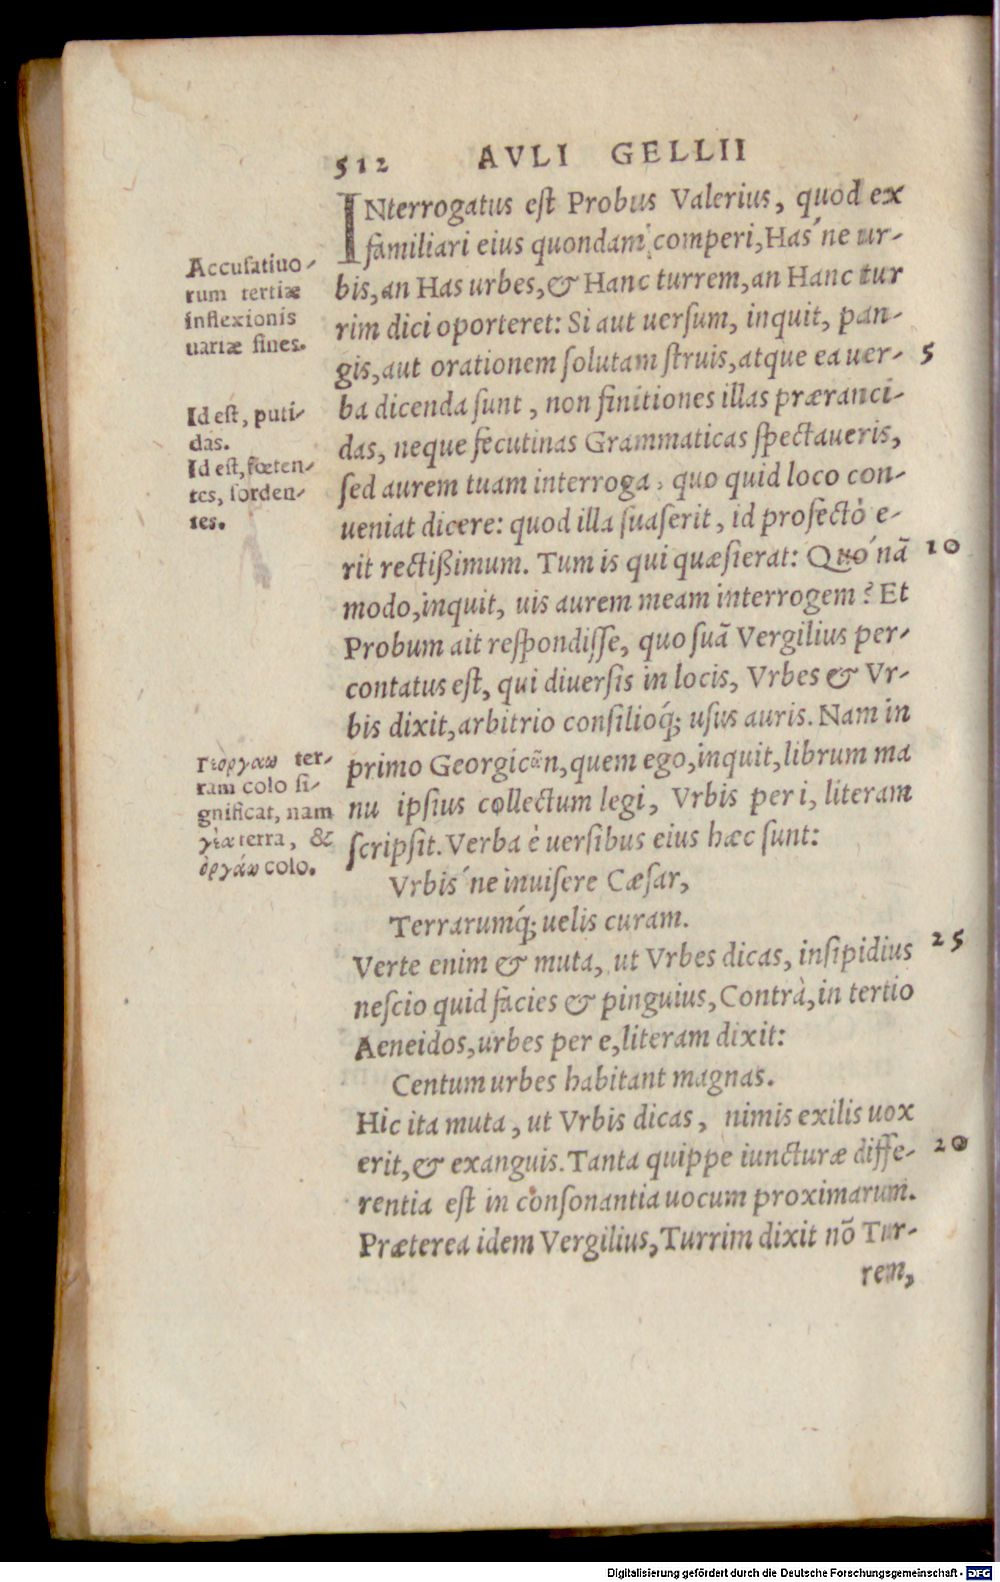 512 AVLI GELLII
INterrogatus est Probus Valerius, quod ex
familiari eius quondam comperi, Has´ne ur-
bis, an Has urbes, & Hanc turrem, an Hanc tur
rim dici oporteret: Si aut uersum, inquit, pan-
gis, aut orationem solutam struis, atque ea uer- 5
ba dicenda sunt, non finitiones illas præranci-
das, neque fecutinas Grammaticas spectaueris,
sed aurem tuam interroga, quo quid loco con-
ueniat dicere: quod illa suaserit, id profectò e-
rit rectißimum. Tum is qui quæsierat: Quo´nã 10
modo, inquit, uis aurem meam interrogem? Et
Probum ait respondisse, quo suã Vergilius per-
contatus est, qui diuersis in locis, Vrbes & Vr-
bis dixit, arbitrio consilioq́; usus auris. Nam in
primo Georgicῶn, quem ego, inquit, librum ma
nu ipsius collectum legi, Vrbis per i, literam
scripsit. Verba è uersibus eius hæc sunt:
Vrbis´ne inuisere Cæsar,
Terrarumq́; uelis curam.
Verte enim & muta, ut Vrbes dicas, insipidius 25
nescio quid facies & pinguius, Contrà, in tertio
Aeneidos, urbes per e, literam dixit:
Centum urbes habitant magnas.
Hic ita muta, ut Vrbis dicas, nimis exilis uox
erit, & exanguis. Tanta quippe iuncturæ diffe- 20
rentia est in consonantia uocum proximarum.
Præterea idem Vergilius, Turrim dixit nõ Tur-
rem,
Accusatiuo-
rum tertiæ
inflexionis
uariæ fines.
Id est, puti-
das.
Id est, fœten-
tes, sorden-
tes.
Γεοργαω ter-
ram colo si-
gnificat, nam
γέα terra, &
ὀργάω colo.
Digitalisierung gefördert durch die Deutsche Forschungsgemeinschaft - DFG